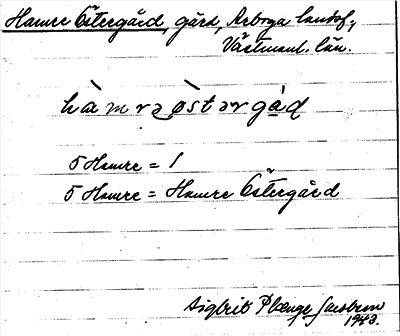 Hamre Östergård, gård, Arboga landsf.,
Västmanl. län.
hàmrə østərgåd
5 Hamre = 1
5 Hamre = Hamre Östergård
Sigbrit Plænge Jacobson